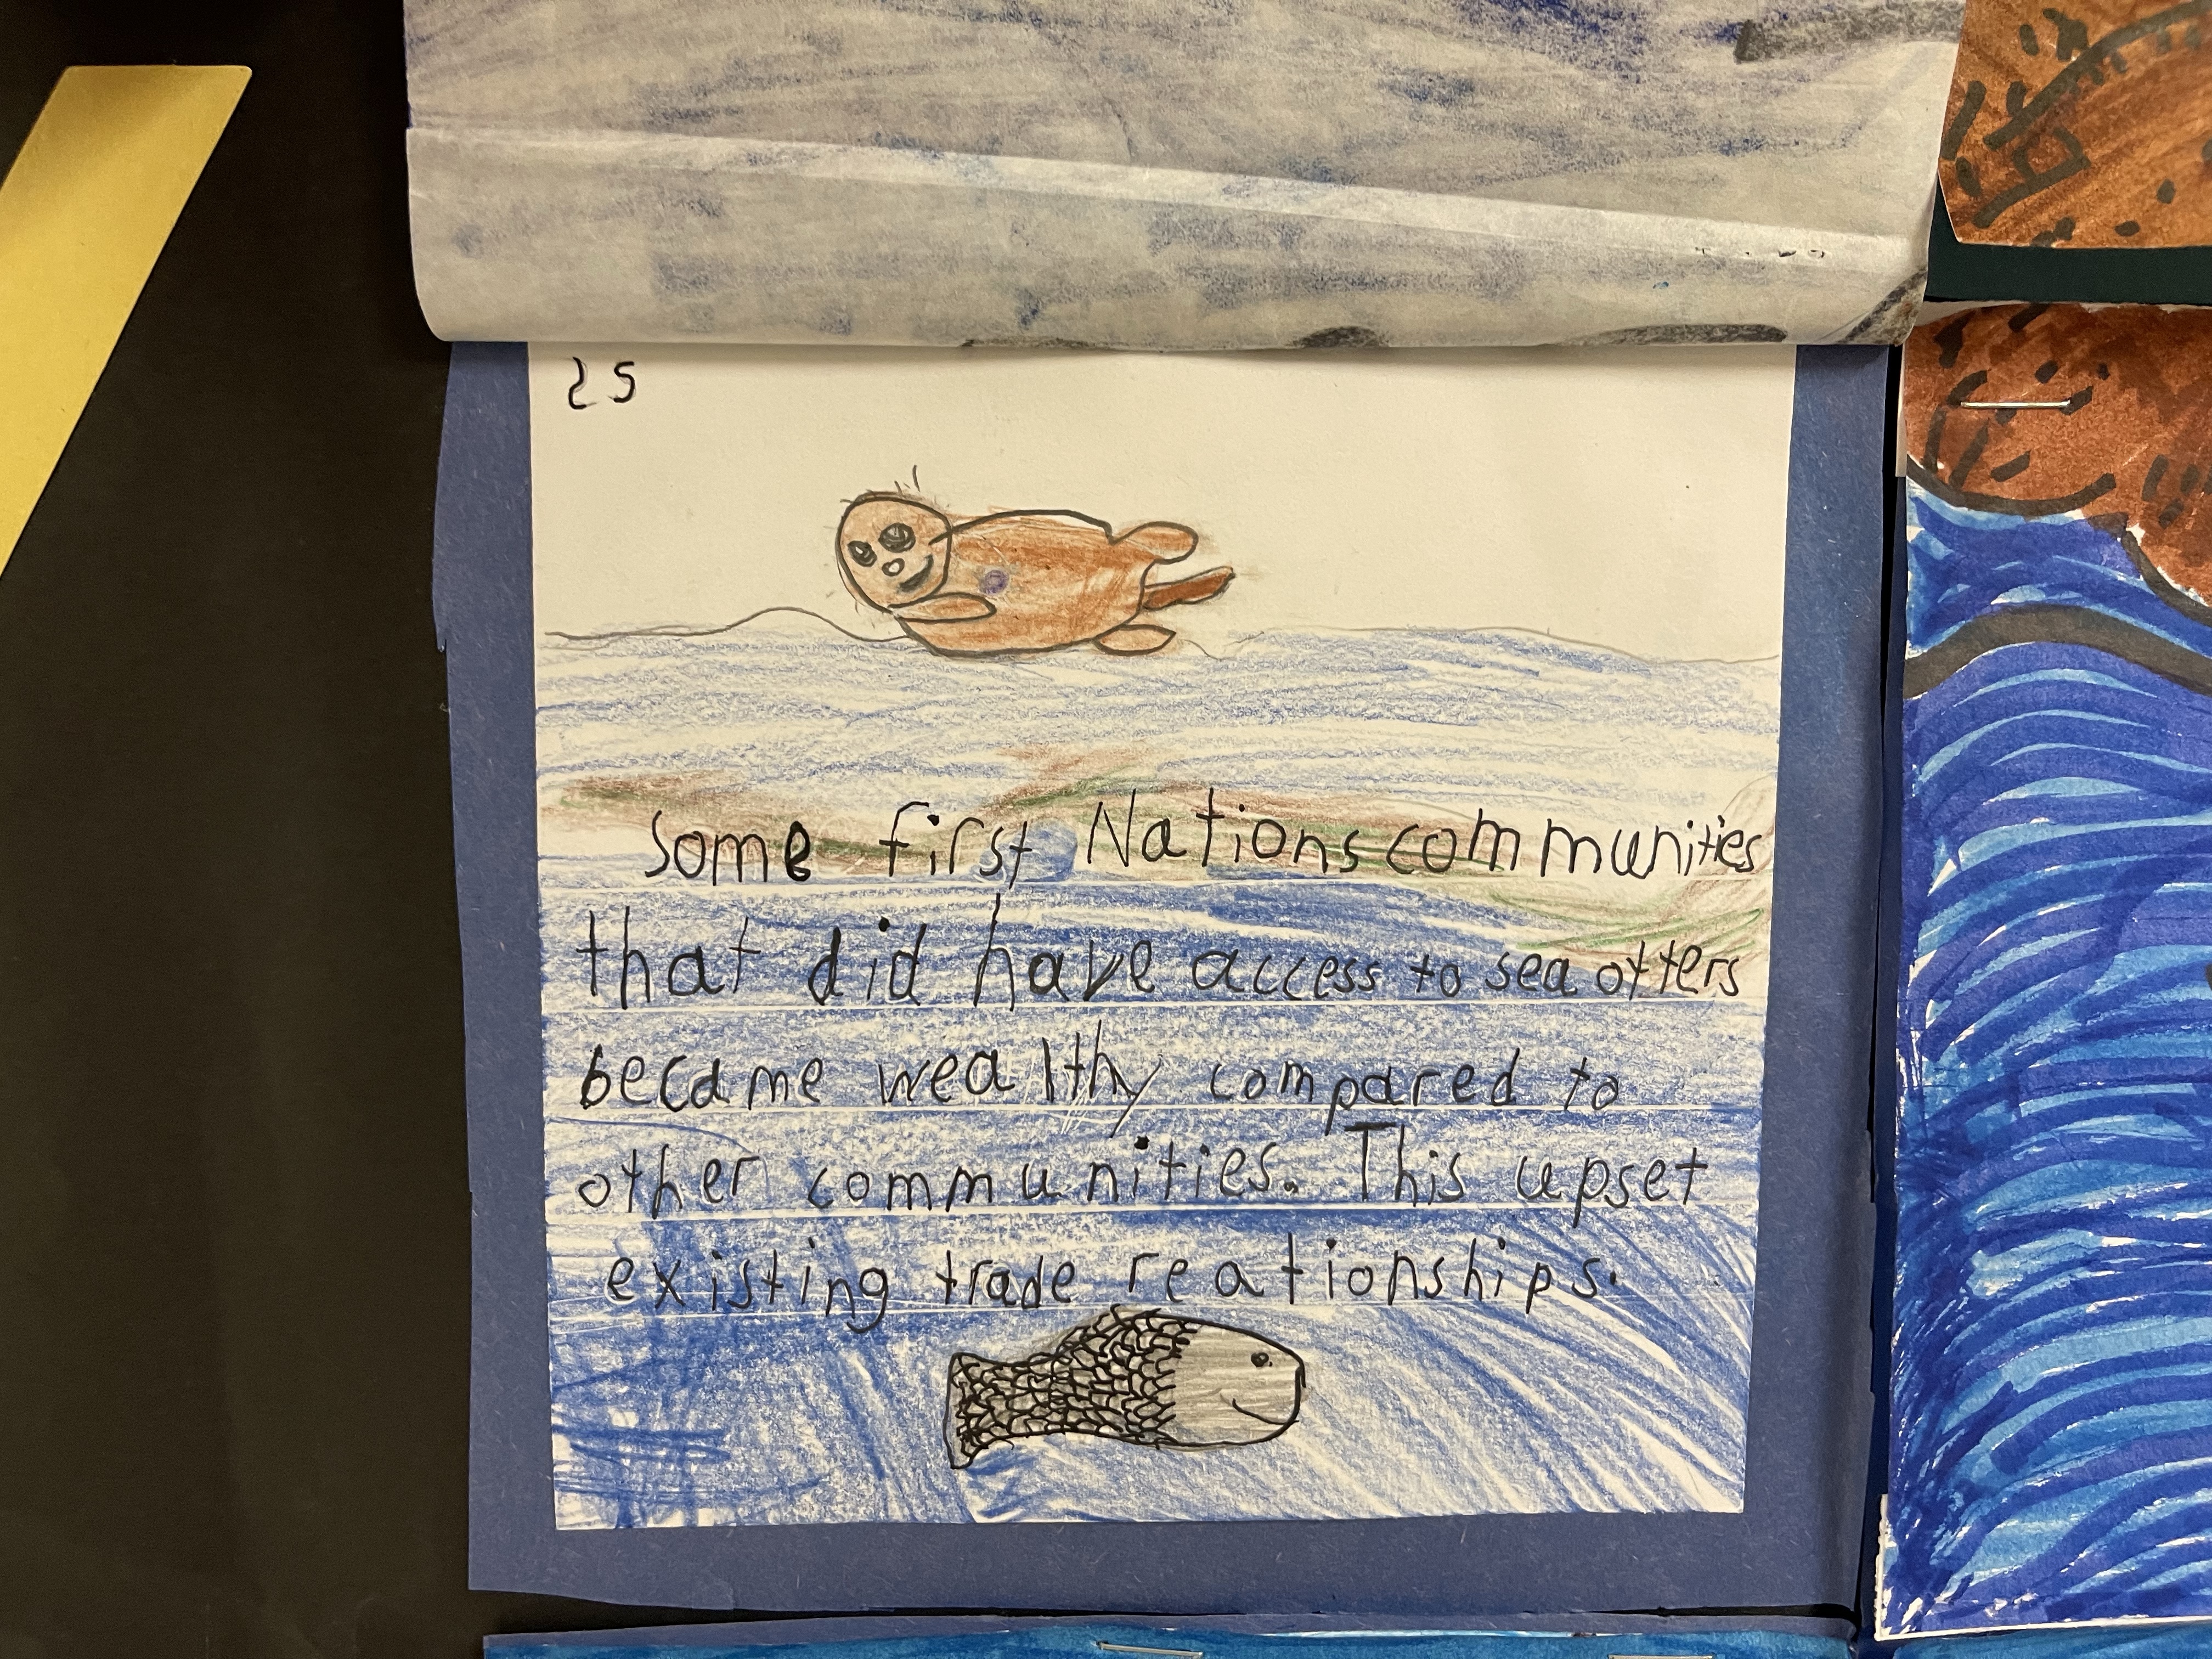 25
Some first Nations communities
that did have access to sea otters
became wealthy compared to
other communities. This upset
existing trade reationships.